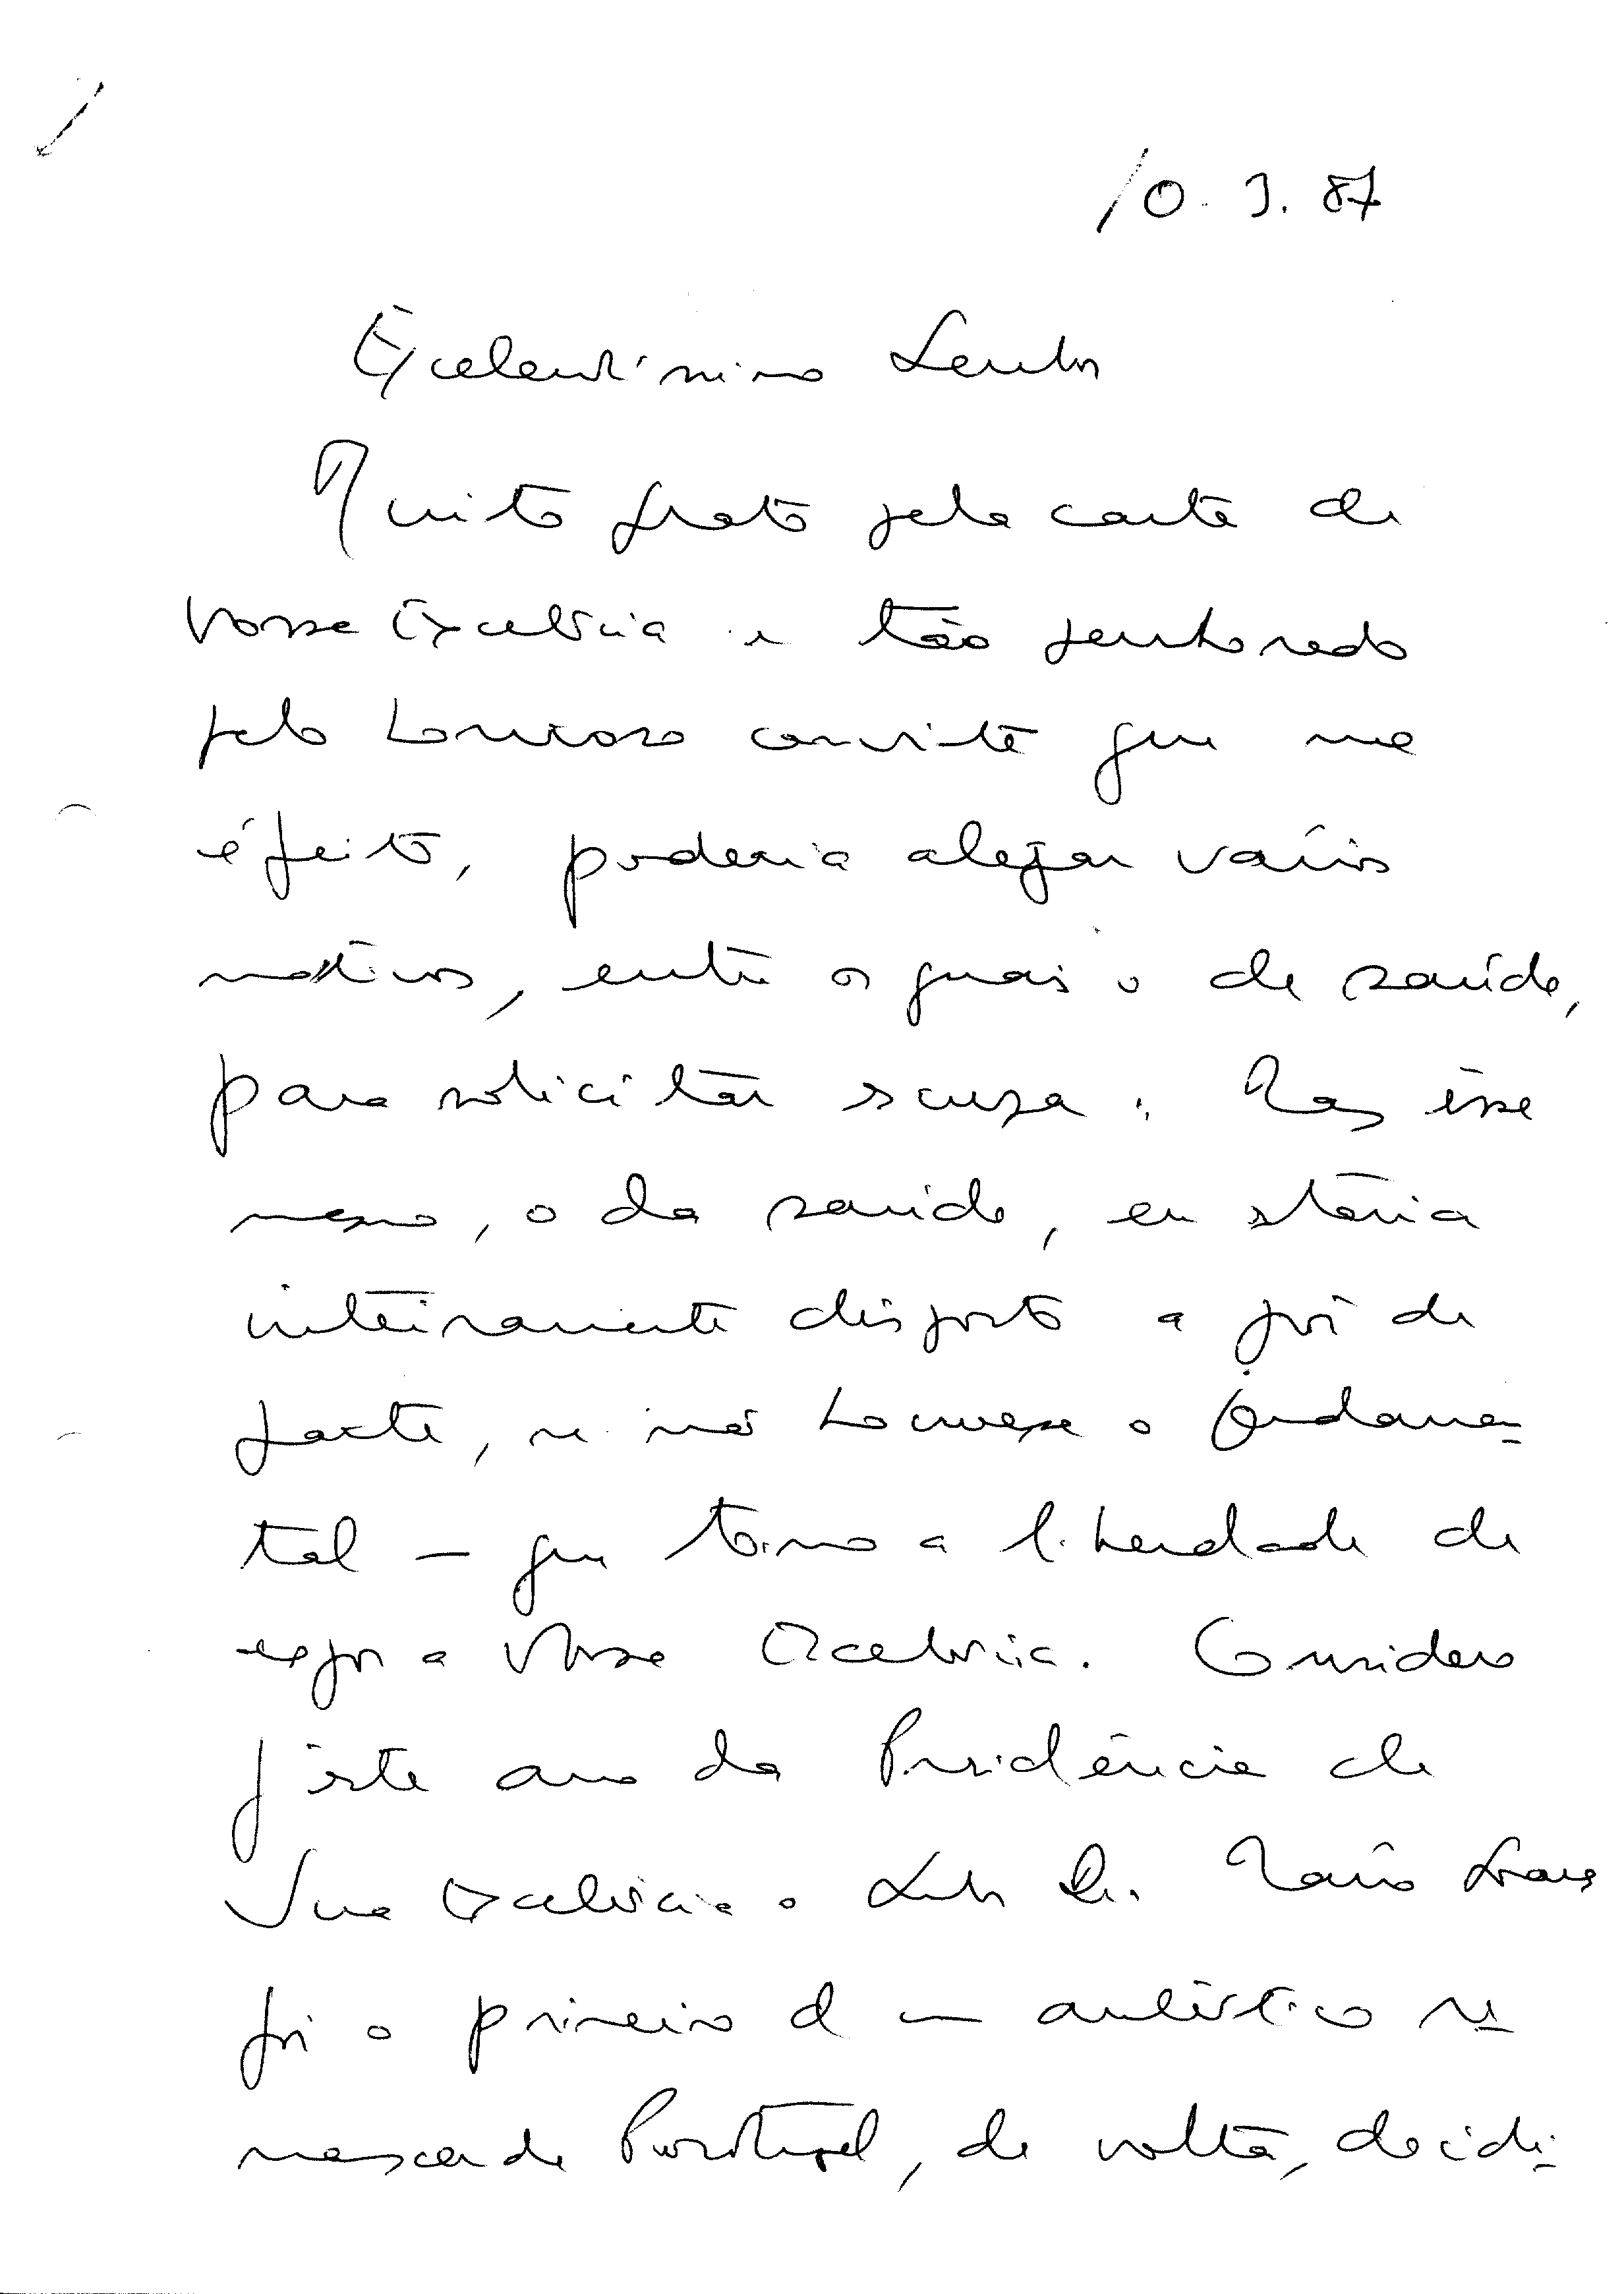 10. 3. 87
Excelentíssimo Senhor
Muito grato pela carta de
Vossa Excelência e tão penhorado
pelo honroso convite que me
é feito, poderia alegar vários
motivos, entre os quais o de saúde,
para solicitar scusa. Mas êsse
mesmo, o da saúde, eu staria
inteiramente disposto a pôr de
parte, se não houvesse o fundamen-
tal — que tomo a liberdade de
expor a Vossa Excelência. Considero
q̃ êste ano da Presidência de
Sua Excelência o Senhor Dr. Mário Soares
foi o primeiro d um autêntico re-
nascer de Portugal, de volta, decidi-